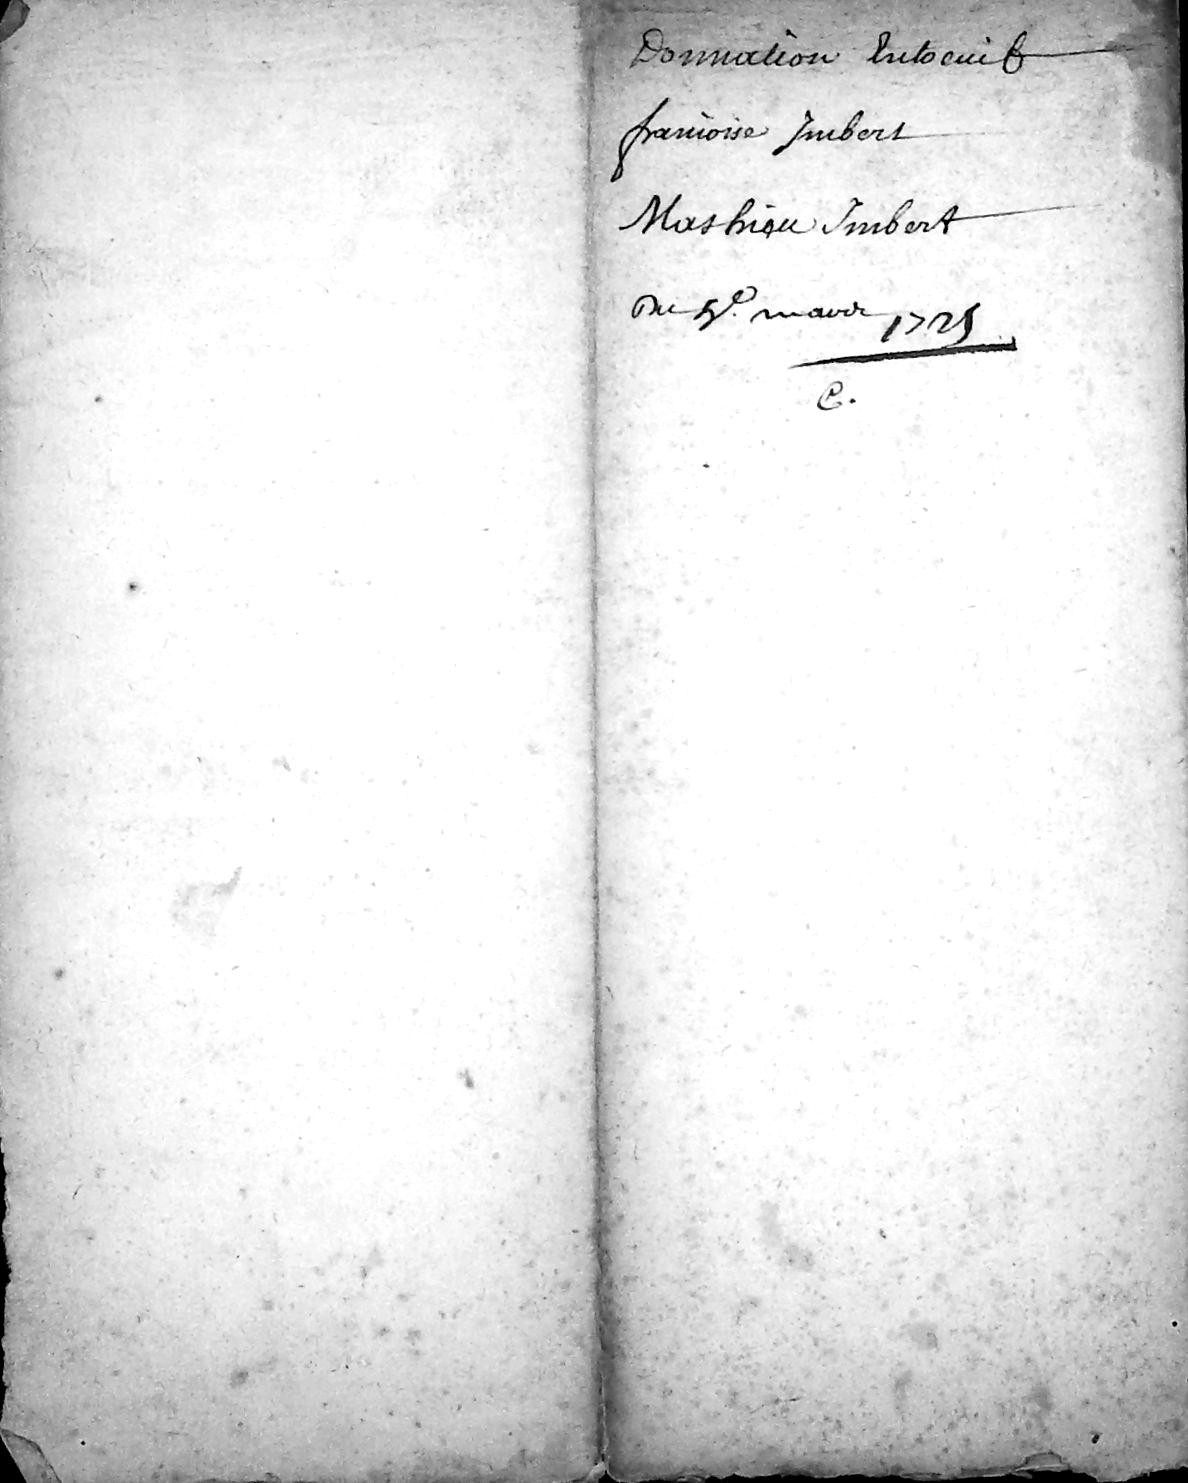 Donnation Entre vifs
francoise Imbert
Mathieu Imbert
Du 5e. mars 1725
C.